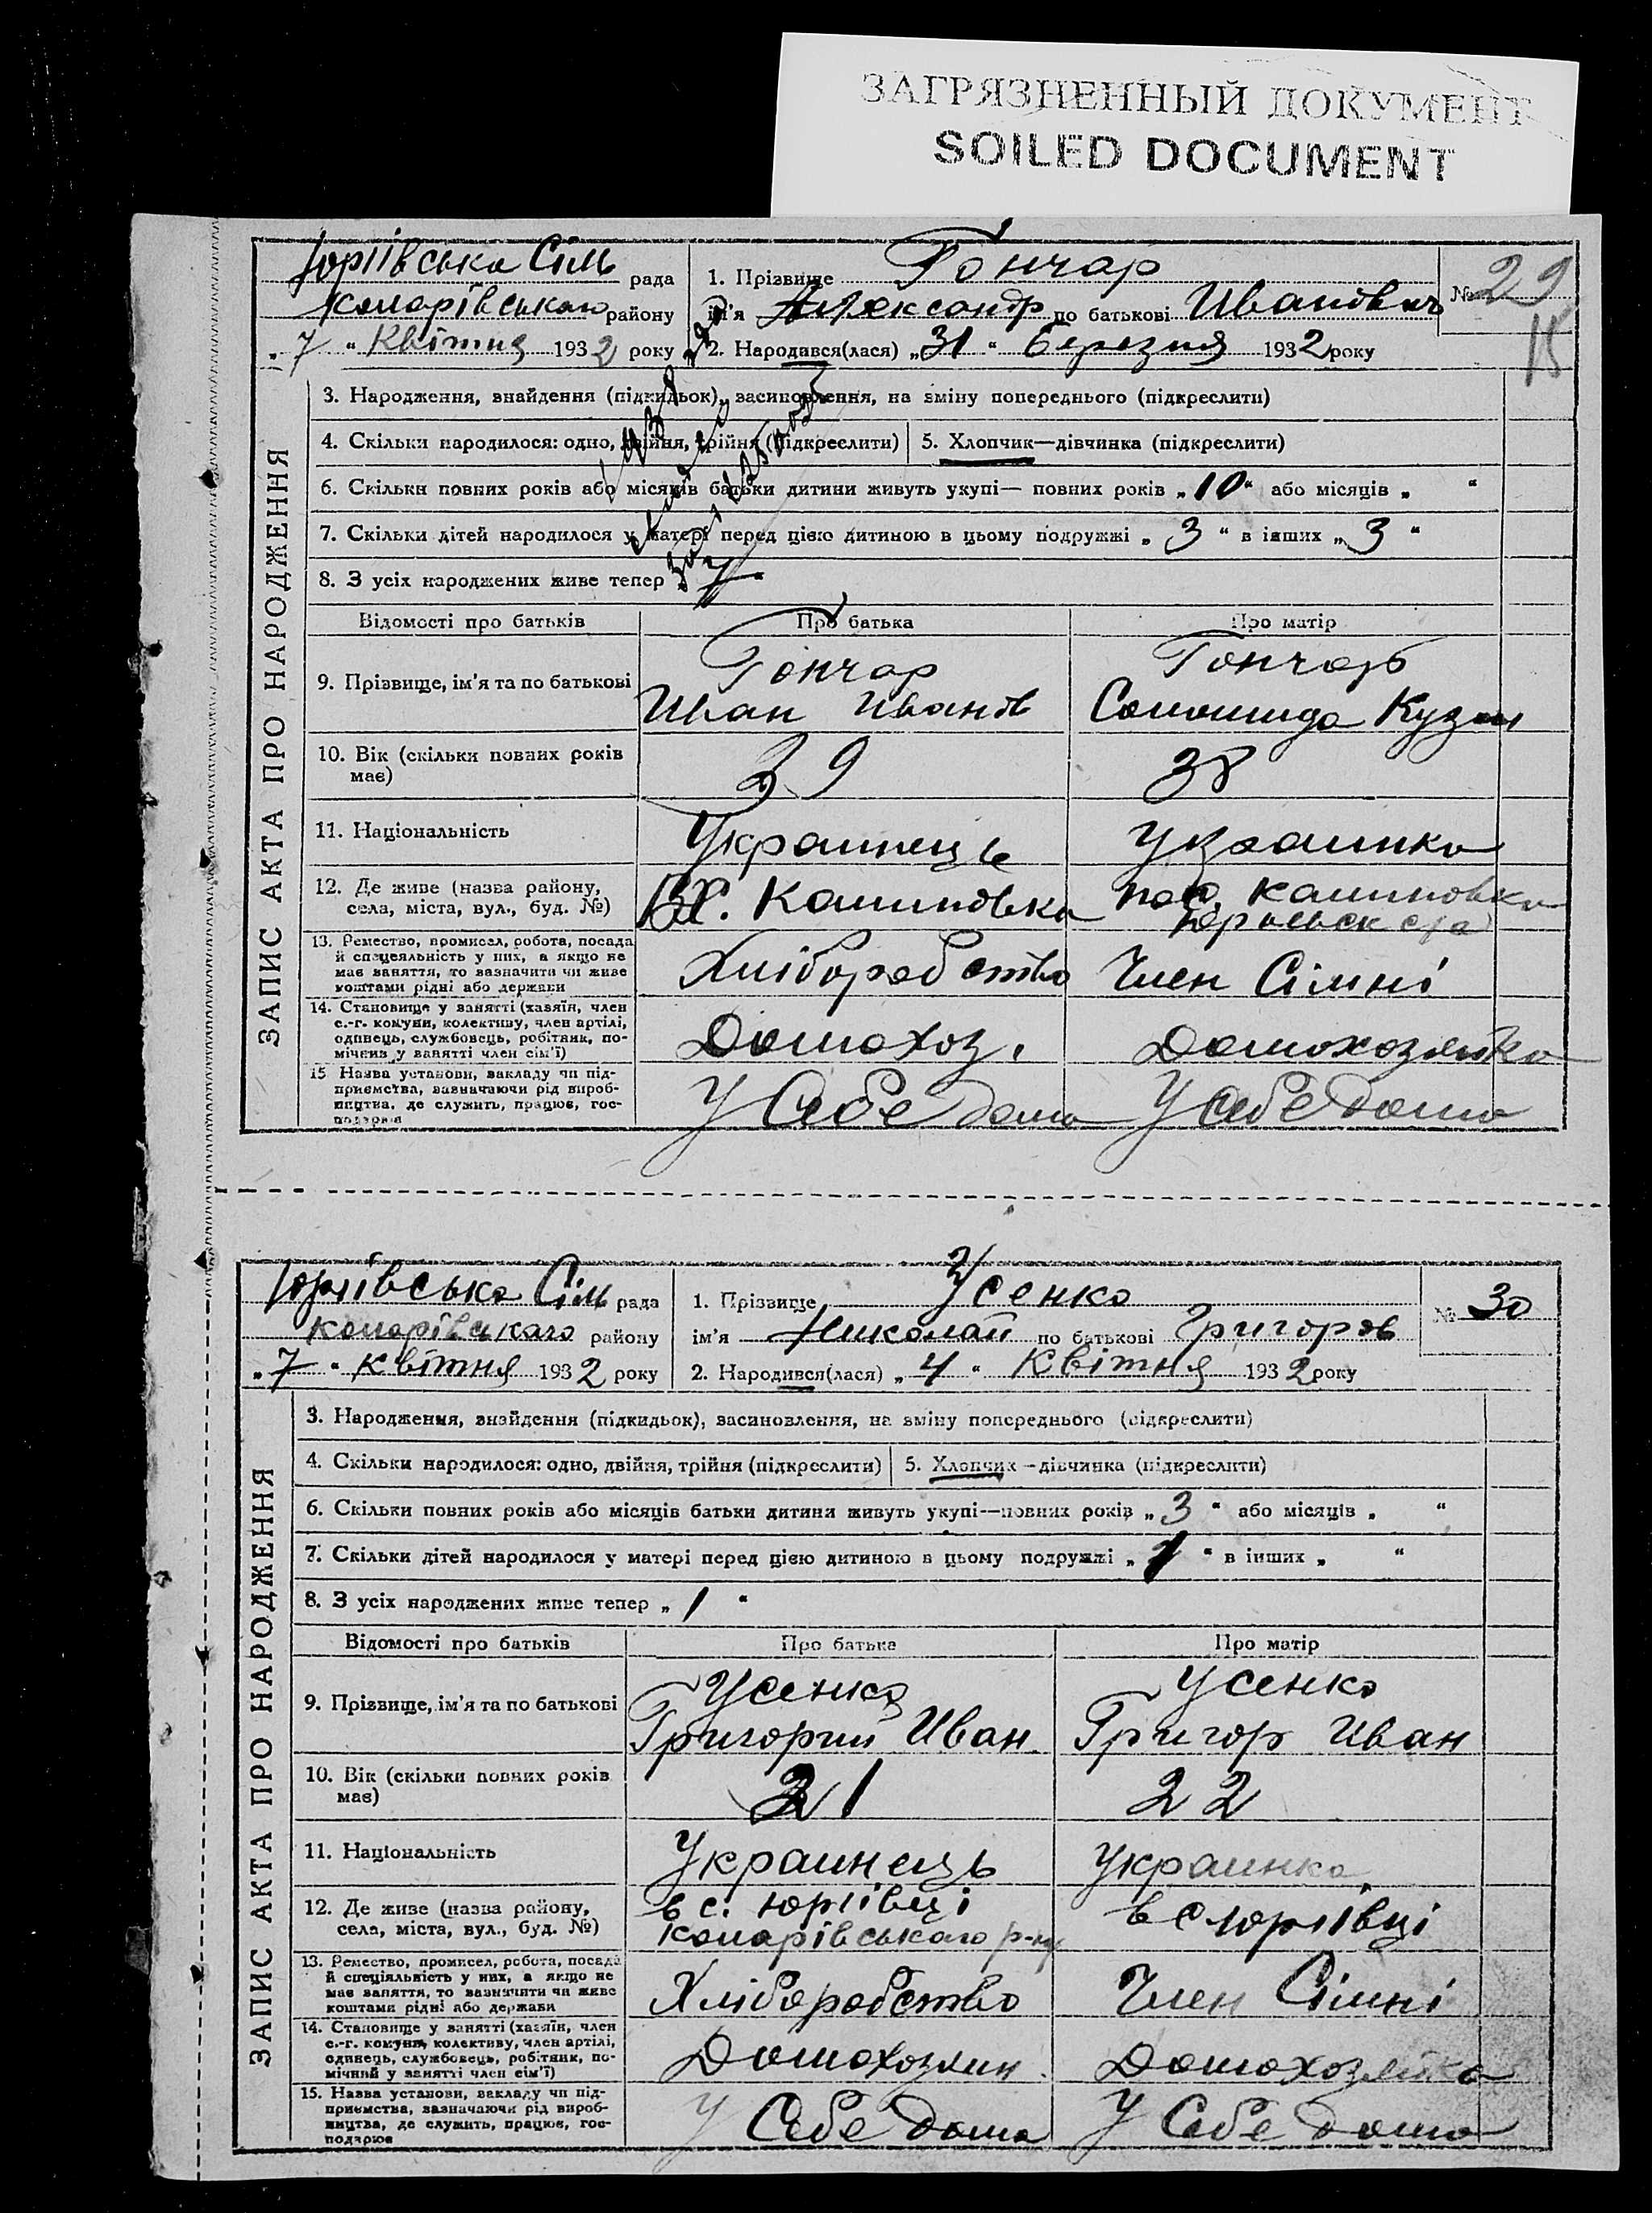 ЗАГРЯЗНЕННЫЙ ДОКУМЕНТ
SOILED DOCUMENT
ЗАПИС АКТА ПРО НАРОДЖЕННЯ
Юріївська Сіль рада
Комарівськаго району
„7“ Квітня 1932 року
1. Прізвище Гончар
ім'я Александр по батькові Иванович
2. Народився(лася) „31“ березня 1932 року
№ 29
15
3. Народження, знайдення (підкидьок), засиновлення, на зміну попереднього (підкреслити)
4. Скільки народилося: одно, двійня, трійня (підкреслити) 5. Хлопчик—дівчинка (підкреслити)
6. Скільки повних років або місяців батьки дитини живуть укупі— повних років „10“ або місяців „ “
7. Скільки дітей народилося у матері перед цією дитиною в цьому подружжі „3“ в інших „3“
8. З усіх народжених живе тепер
Відомості про батьків Про батька Про матір
9. Прізвище, ім'я та по батькові
Гончар
Иван Иванов
Гончарь
Кузм
10. Вік (скільки повних років має) 39 38
11. Національність Украинець Украинка
12. Де живе (назва району, села, міста, вул., буд. №)
Калиновка
Калиновка
13. Ремество, промисел, робота, посада й спеціяльність у них, а якщо не має заняття, то зазначити чи живе коштами рідні або держави
Хліборобство Член Сімні
14. Становище у занятті (хазяїн, член с.-г. комуни, колективу, член артілі, одинець, службовець, робітник, помічний у занятті член сім'ї)
Домохоз. Домохозяйка
15 Назва установи, закладу чи підприємства, зазначаючи рід виробництва, де служить, працює, господарює
У Себе дома У Себе дома
ЗАПИС АКТА ПРО НАРОДЖЕННЯ
Юріївська Сіль рада
Комарівськаго району
„7“ квітня 1932 року
1. Прізвище Усенко
ім'я Николай по батькові Григоров
2. Народився(лася) „4“ Квітня 1932 року
№ 30
3. Народження, знайдення (підкидьок), засиновлення, на зміну попереднього (підкреслити)
4. Скільки народилося: одно, двійня, трійня (підкреслити) 5. Хлопчик—дівчинка (підкреслити)
6. Скільки повних років або місяців батьки дитини живуть укупі—повних років „3“ або місяців „ “
7. Скільки дітей народилося у матері перед цією дитиною в цьому подружжі „1“ в інших „ “
8. З усіх народжених живе тепер „1“
Відомості про батьків Про батька Про матір
9. Прізвище, ім'я та по батькові
Усенко
Григорий Иван
Усенко
Григор Иван
10. Вік (скільки повних років має) 21 22
11. Національність Украинець Украинка
12. Де живе (назва району, села, міста, вул., буд. №)
в с. Юріївці
Комарівськаго р-ну
в с Юріївці
13. Ремество, промисел, робота, посада й спеціяльність у них, а якщо не має заняття, то зазначити чи живе коштами рідні або держави
Хліборобство Член Сімні
14. Становище у занятті (хазяїн, член с.-г. комуни, колективу, член артілі, одинець, службовець, робітник, помічний у занятті член сім'ї)
Домохозяин Домохозяйка
15. Назва установи, закладу чи підприємства, зазначаючи рід виробництва, де служить, працює, господарює
У Себе дома У Себе дома